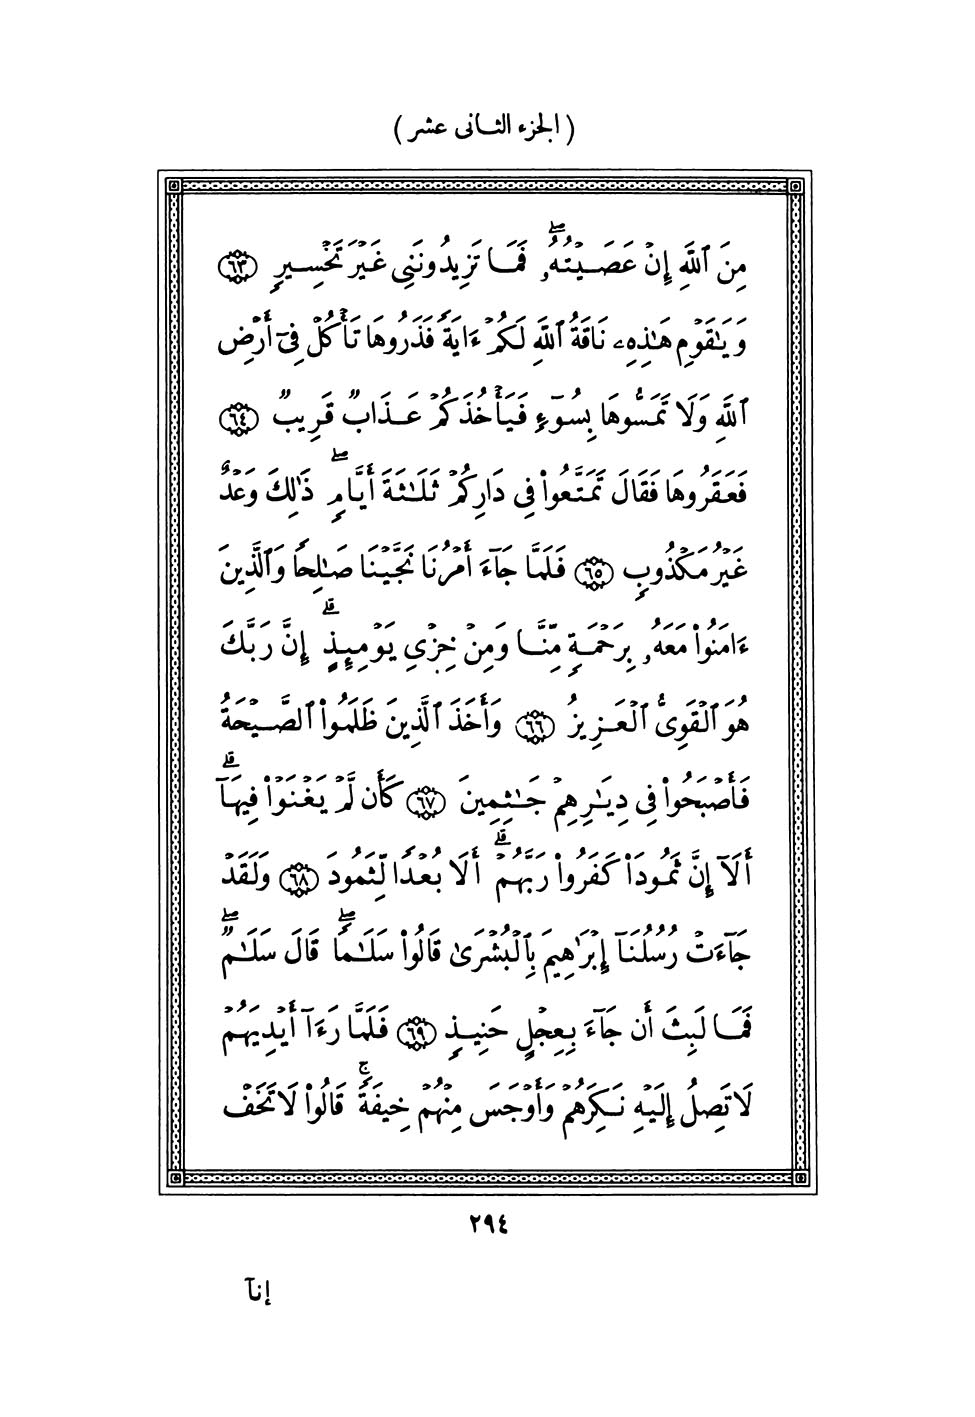 ( الجزء الثانى عشر )
مِنَ ٱللَّهِ إِنْ عَصَيْتُهُۥۖ فَمَا تَزِيدُونَنِى غَيْرَ تَخْسِيرٍ ﴿٦٣﴾
وَيَـٰقَوْمِ هَـٰذِهِۦ نَاقَةُ ٱللَّهِ لَكُمْ ءَايَةً فَذَرُوهَا تَأْكُلْ فِىٓ أَرْضِ
ٱللَّهِ وَلَا تَمَسُّوهَا بِسُوٓءٍ فَيَأْخُذَكُمْ عَذَابٌ قَرِيبٌ ﴿٦٤﴾
فَعَقَرُوهَا فَقَالَ تَمَتَّعُوا۟ فِى دَارِكُمْ ثَلَـٰثَةَ أَيَّامٍۖ ذَٰلِكَ وَعْدٌ
غَيْرُ مَكْذُوبٍ ﴿٦٥﴾ فَلَمَّا جَآءَ أَمْرُنَا نَجَّيْنَا صَـٰلِحًا وَٱلَّذِينَ
ءَامَنُوا۟ مَعَهُۥ بِرَحْمَةٍ مِّنَّا وَمِنْ خِزْىِ يَوْمِئِذٍۗ إِنَّ رَبَّكَ
هُوَ ٱلْقَوِىُّ ٱلْعَزِيزُ ﴿٦٦﴾ وَأَخَذَ ٱلَّذِينَ ظَلَمُوا۟ ٱلصَّيْحَةُ
فَأَصْبَحُوا۟ فِى دِيَـٰرِهِمْ جَـٰثِمِينَ ﴿٦٧﴾ كَأَن لَّمْ يَغْنَوْا۟ فِيهَآۗ
أَلَآ إِنَّ ثَمُودَا۟ كَفَرُوا۟ رَبَّهُمْۗ أَلَا بُعْدًا لِّثَمُودَ ﴿٦٨﴾ وَلَقَدْ
جَآءَتْ رُسُلُنَآ إِبْرَٰهِيمَ بِٱلْبُشْرَىٰ قَالُوا۟ سَلَـٰمًاۖ قَالَ سَلَـٰمٌۖ
فَمَا لَبِثَ أَن جَآءَ بِعِجْلٍ حَنِيذٍ ﴿٦٩﴾ فَلَمَّا رَءَآ أَيْدِيَهُمْ
لَا تَصِلُ إِلَيْهِ نَكِرَهُمْ وَأَوْجَسَ مِنْهُمْ خِيفَةًۚ قَالُوا۟ لَا تَخَفْ
٢٩٤
إنآ